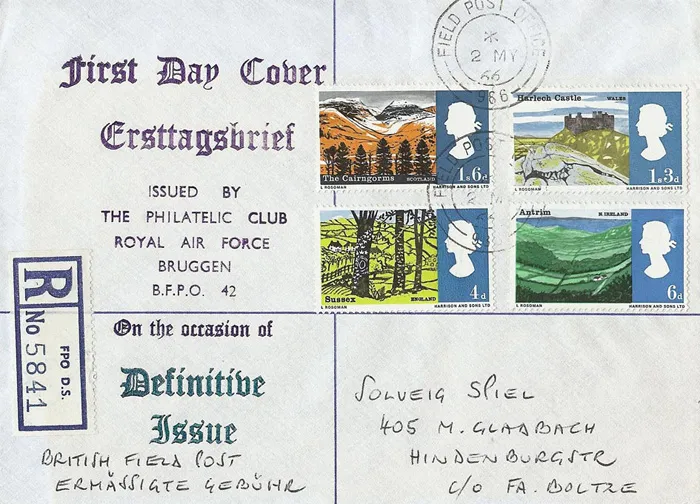 First Day Cover
Ersttagsbrief
ISSUED BY
THE PHILATELIC CLUB
ROYAL AIR FORCE
BRUGGEN
B.F.P.O. 42
On the occasion of
Definitive
Issue
BRITISH FIELD POST
ERMÄSSIGTE GEBÜHR
R
No 5841
FPO D.S.
FIELD POST OFFICE
2 MY
66
986
The Cairngorms SCOTLAND
1s 6d
L ROSOMAN HARRISON AND SONS LTD
Harlech Castle WALES
1s 3d
L ROSOMAN HARRISON AND SONS LTD
Sussex ENGLAND
4d
L ROSOMAN HARRISON AND SONS LTD
Antrim N IRELAND
6d
L ROSOMAN HARRISON AND SONS LTD
FIELD POST
SOLVEIG SPIEL
405 M. GLADBACH
HINDENBURGSTR
C/O FA. BOLTZE